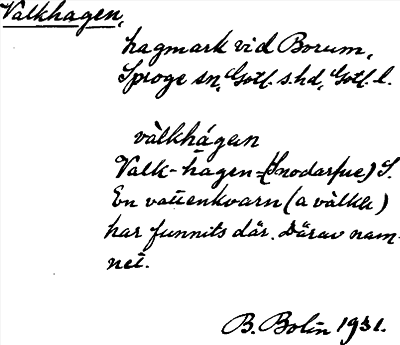 Valkhagen,
hagmark vid Borum,
Sproge sn, Gotl. s. hd, Gotl. l.
vàlkhágen
Valk-hagen - (Snodarfue) S.
En vattenkvarn (a vàlkä)
har funnits där. Därav nam-
net.
B. Bolin 1931.